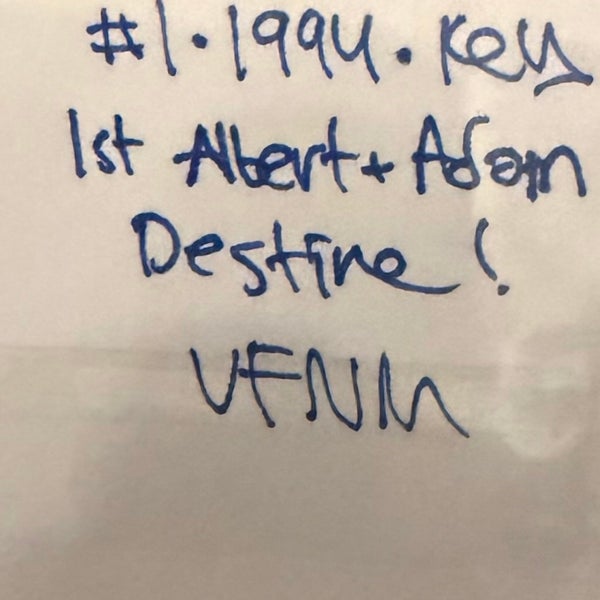 #1.1994.Key
1st Albert + Adam
Destine!
VFNM